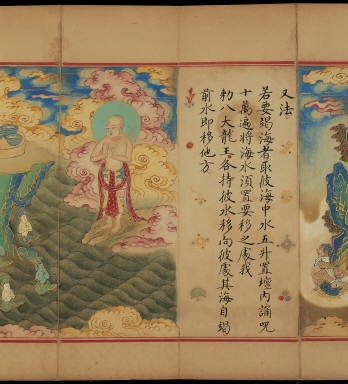 又法
若要竭海者取彼海中水五升置壇內誦呪
十萬遍將海水須置要移之處我
勑八大龍王各持彼水移向彼處其海自竭
前水即移他方